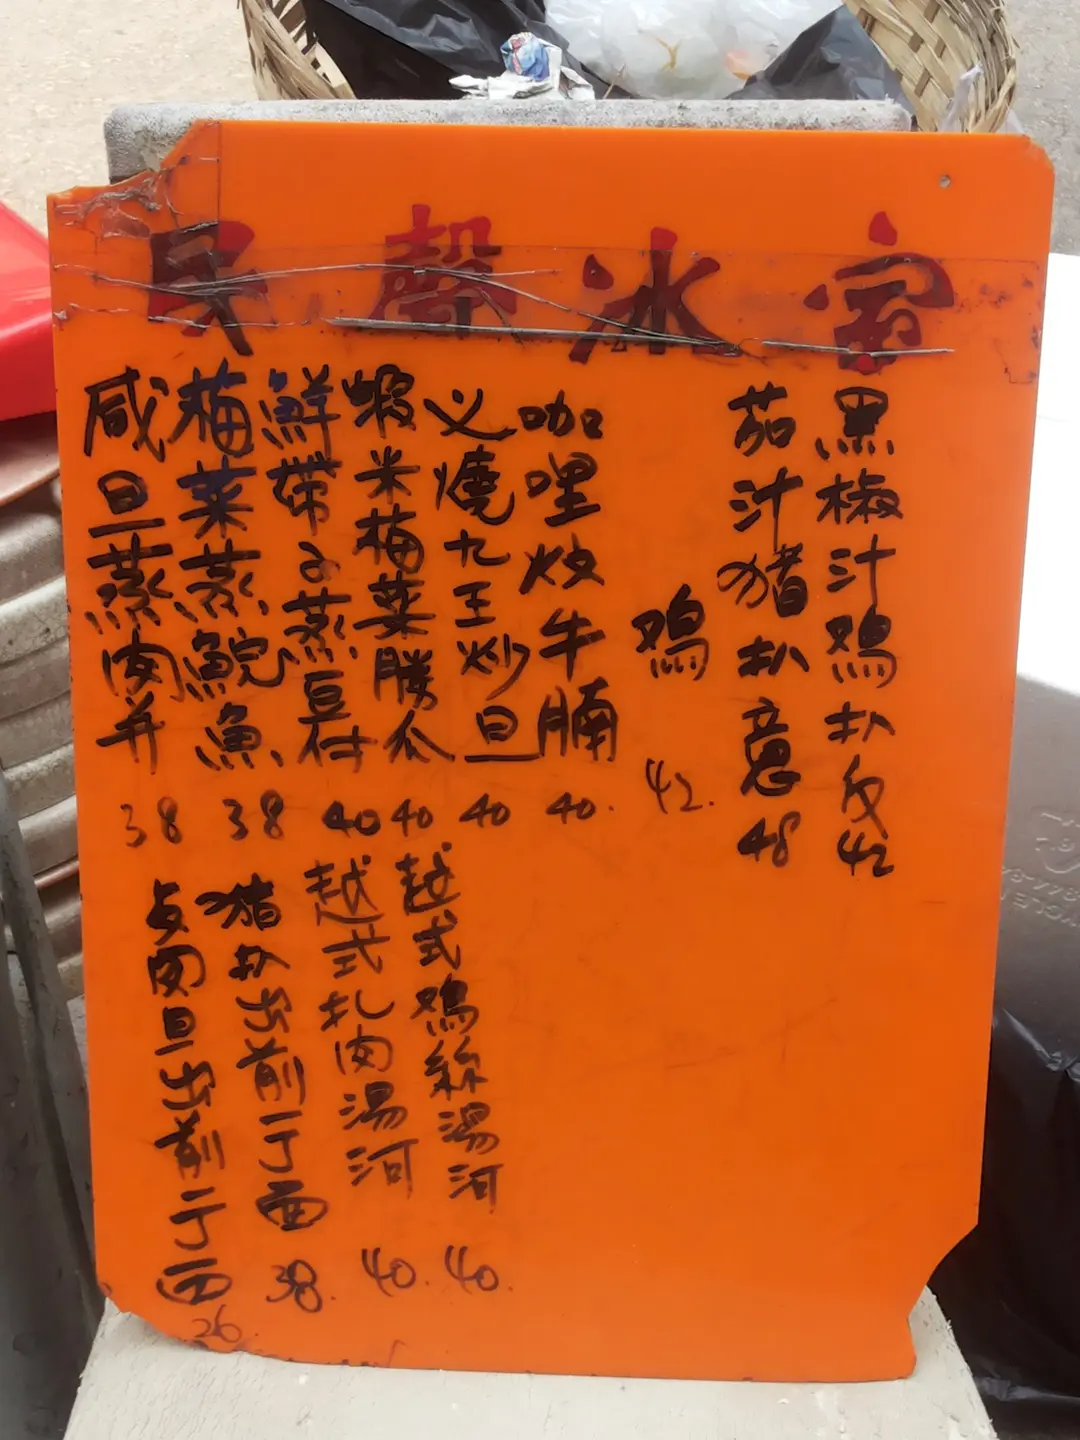 民聲冰室
黑椒汁鸡扒反 42
茄汁猪扒意 48
鸡 42.
咖哩炆牛腩 40.
义燒九王炒旦 40
蝦米梅菜勝瓜 40
鮮帶子蒸豆付 40
梅菜蒸鯇魚 38
咸旦蒸肉并 38
越式鸡絲湯河 40.
越式扎肉湯河 40.
猪扒出前一丁面 38.
歺肉旦出前一丁面 26.